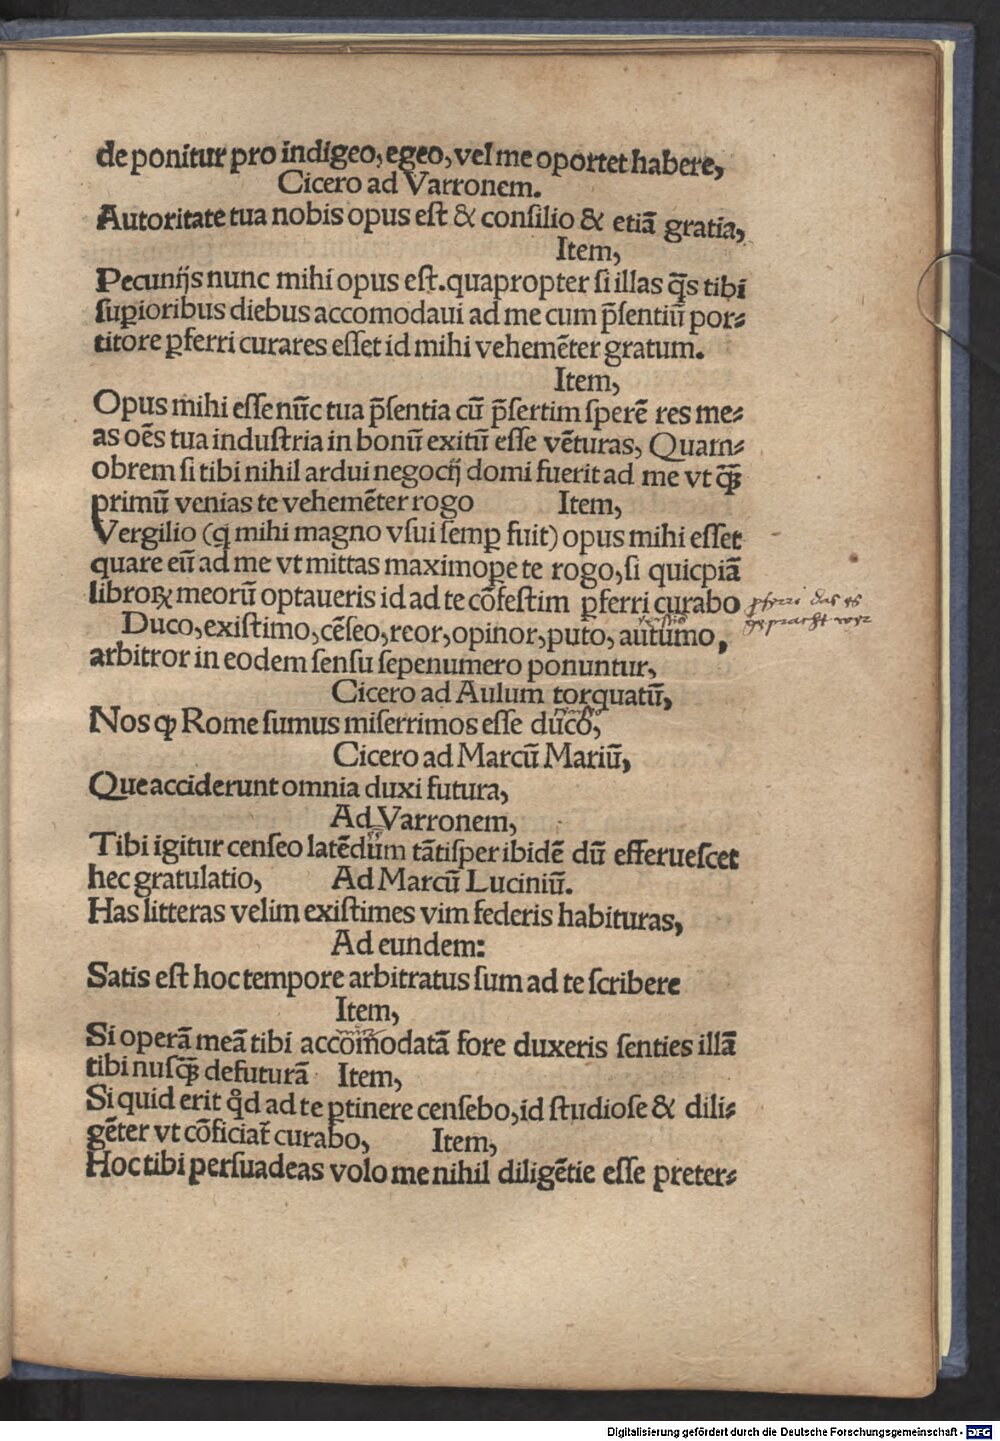 de ponitur pro indigeo, egeo, vel me oportet habere,
Cicero ad Varronem.
Autoritate tua nobis opus eſt & conſilio & etiã gratia,
Item,
Pecunijs nunc mihi opus eſt. quapropter ſi illas q̃s tibi
ſuꝑioribus diebus accomodaui ad me cum p̃ſentiũ por⸗
titore ꝑferri curares eſſet id mihi vehemẽter gratum.
Item,
Opus mihi eſſe nũc tua p̃ſentia cũ p̃ſertim ſperẽ res me⸗
as oẽs tua induſtria in bonũ exitũ eſſe vẽturas, Quam⸗
obrem ſi tibi nihil ardui negocij domi fuerit ad me vt q̃ꝫ
primũ venias te vehemẽter rogo Item,
Vergilio (q̃ mihi magno vſui ſemꝑ fuit) opus mihi eſſet
quare eũ ad me vt mittas maximoꝑe te rogo, ſi quicpiã
libroꝝ meorũ optaueris id ad te cõfeſtim ꝑferri curabo
ꝑferri das es
gepracht wer
Duco, exiſtimo, cẽſeo, reor, opinor, puto, autumo,
arbitror in eodem ſenſu ſepenumero ponuntur,
Cicero ad Aulum torquatũ,
Nos ꝙ Rome ſumus miſerrimos eſſe duco,
Cicero ad Marcũ Mariũ,
Que acciderunt omnia duxi futura,
Ad Varronem,
Tibi igitur cenſeo latẽdũm tãtiſper ibidẽ dũ efferueſcet
hec gratulatio, Ad Marcũ Luciniũ.
Has litteras velim exiſtimes vim federis habituras,
Ad eundem:
Satis eſt hoc tempore arbitratus ſum ad te ſcribere
Item,
Si operã meã tibi accom̃odatã fore duxeris ſenties illã
tibi nuſq̃ꝫ defuturã Item,
Si quid erit qd̓ ad te ꝑtinere cenſebo, id ſtudioſe & dili⸗
gẽter vt cõficiat̃ curabo, Item,
Hoc tibi perſuadeas volo me nihil diligẽtie eſſe preter⸗
Digitalisierung gefördert durch die Deutsche Forschungsgemeinschaft - DFG